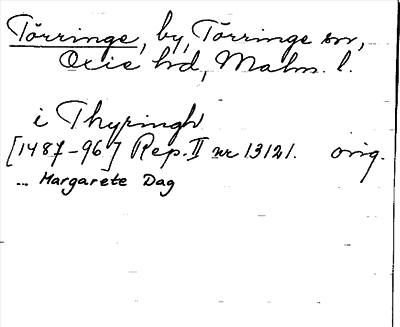 Törringe, by, Törringe sn,
Oxie hd, Malm. l.
i Thyringh
[1487-96] Rep. II nr 13121. orig.
... Margarete Dag